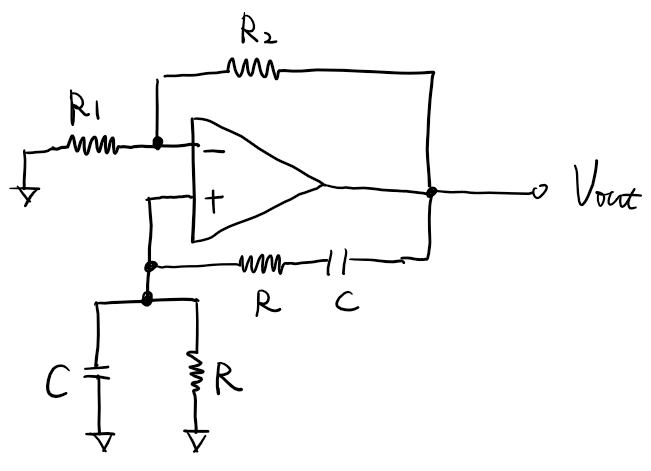 R2
R1
−
+
Vout
R
C
C
R